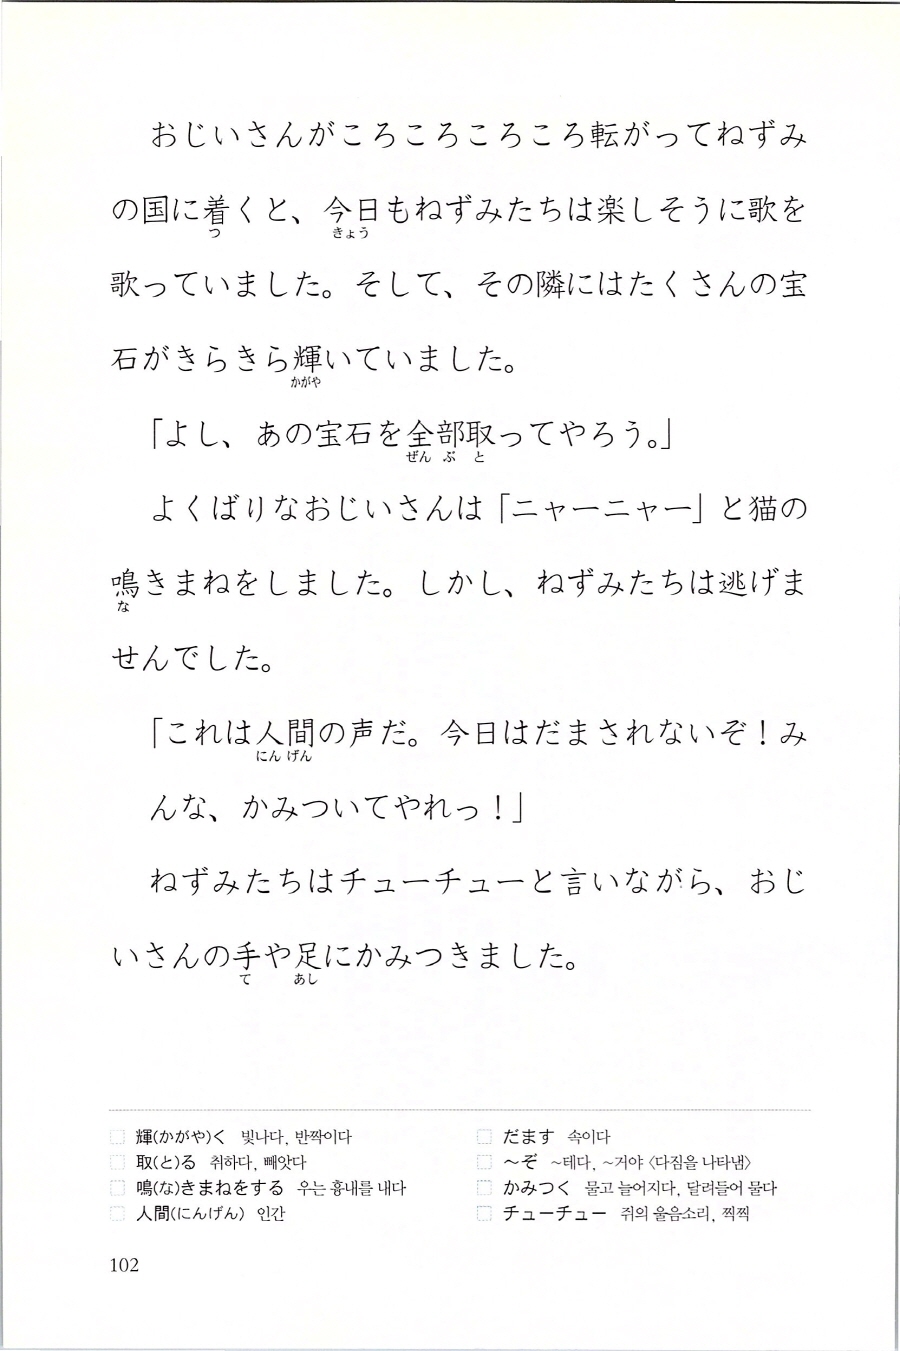 おじいさんがころころころころ転がってねずみ
の国に着くと、今日もねずみたちは楽しそうに歌を
つ きょう
歌っていました。そして、その隣にはたくさんの宝
石がきらきら輝いていました。
かがや
「よし、あの宝石を全部取ってやろう。」
ぜん ぶ と
よくばりなおじいさんは「ニャーニャー」と猫の
鳴きまねをしました。しかし、ねずみたちは逃げま
な
せんでした。
「これは人間の声だ。今日はだまされないぞ！み
にん げん
んな、かみついてやれっ！」
ねずみたちはチューチューと言いながら、おじ
いさんの手や足にかみつきました。
て あし
輝(かがや)く 빛나다, 반짝이다
取(と)る 취하다, 빼앗다
鳴(な)きまねをする 우는 흉내를 내다
人間(にんげん) 인간
だます 속이다
～ぞ ~테다, ~거야 〈다짐을 나타냄〉
かみつく 물고 늘어지다, 달려들어 물다
チューチュー 쥐의 울음소리, 찍찍
102